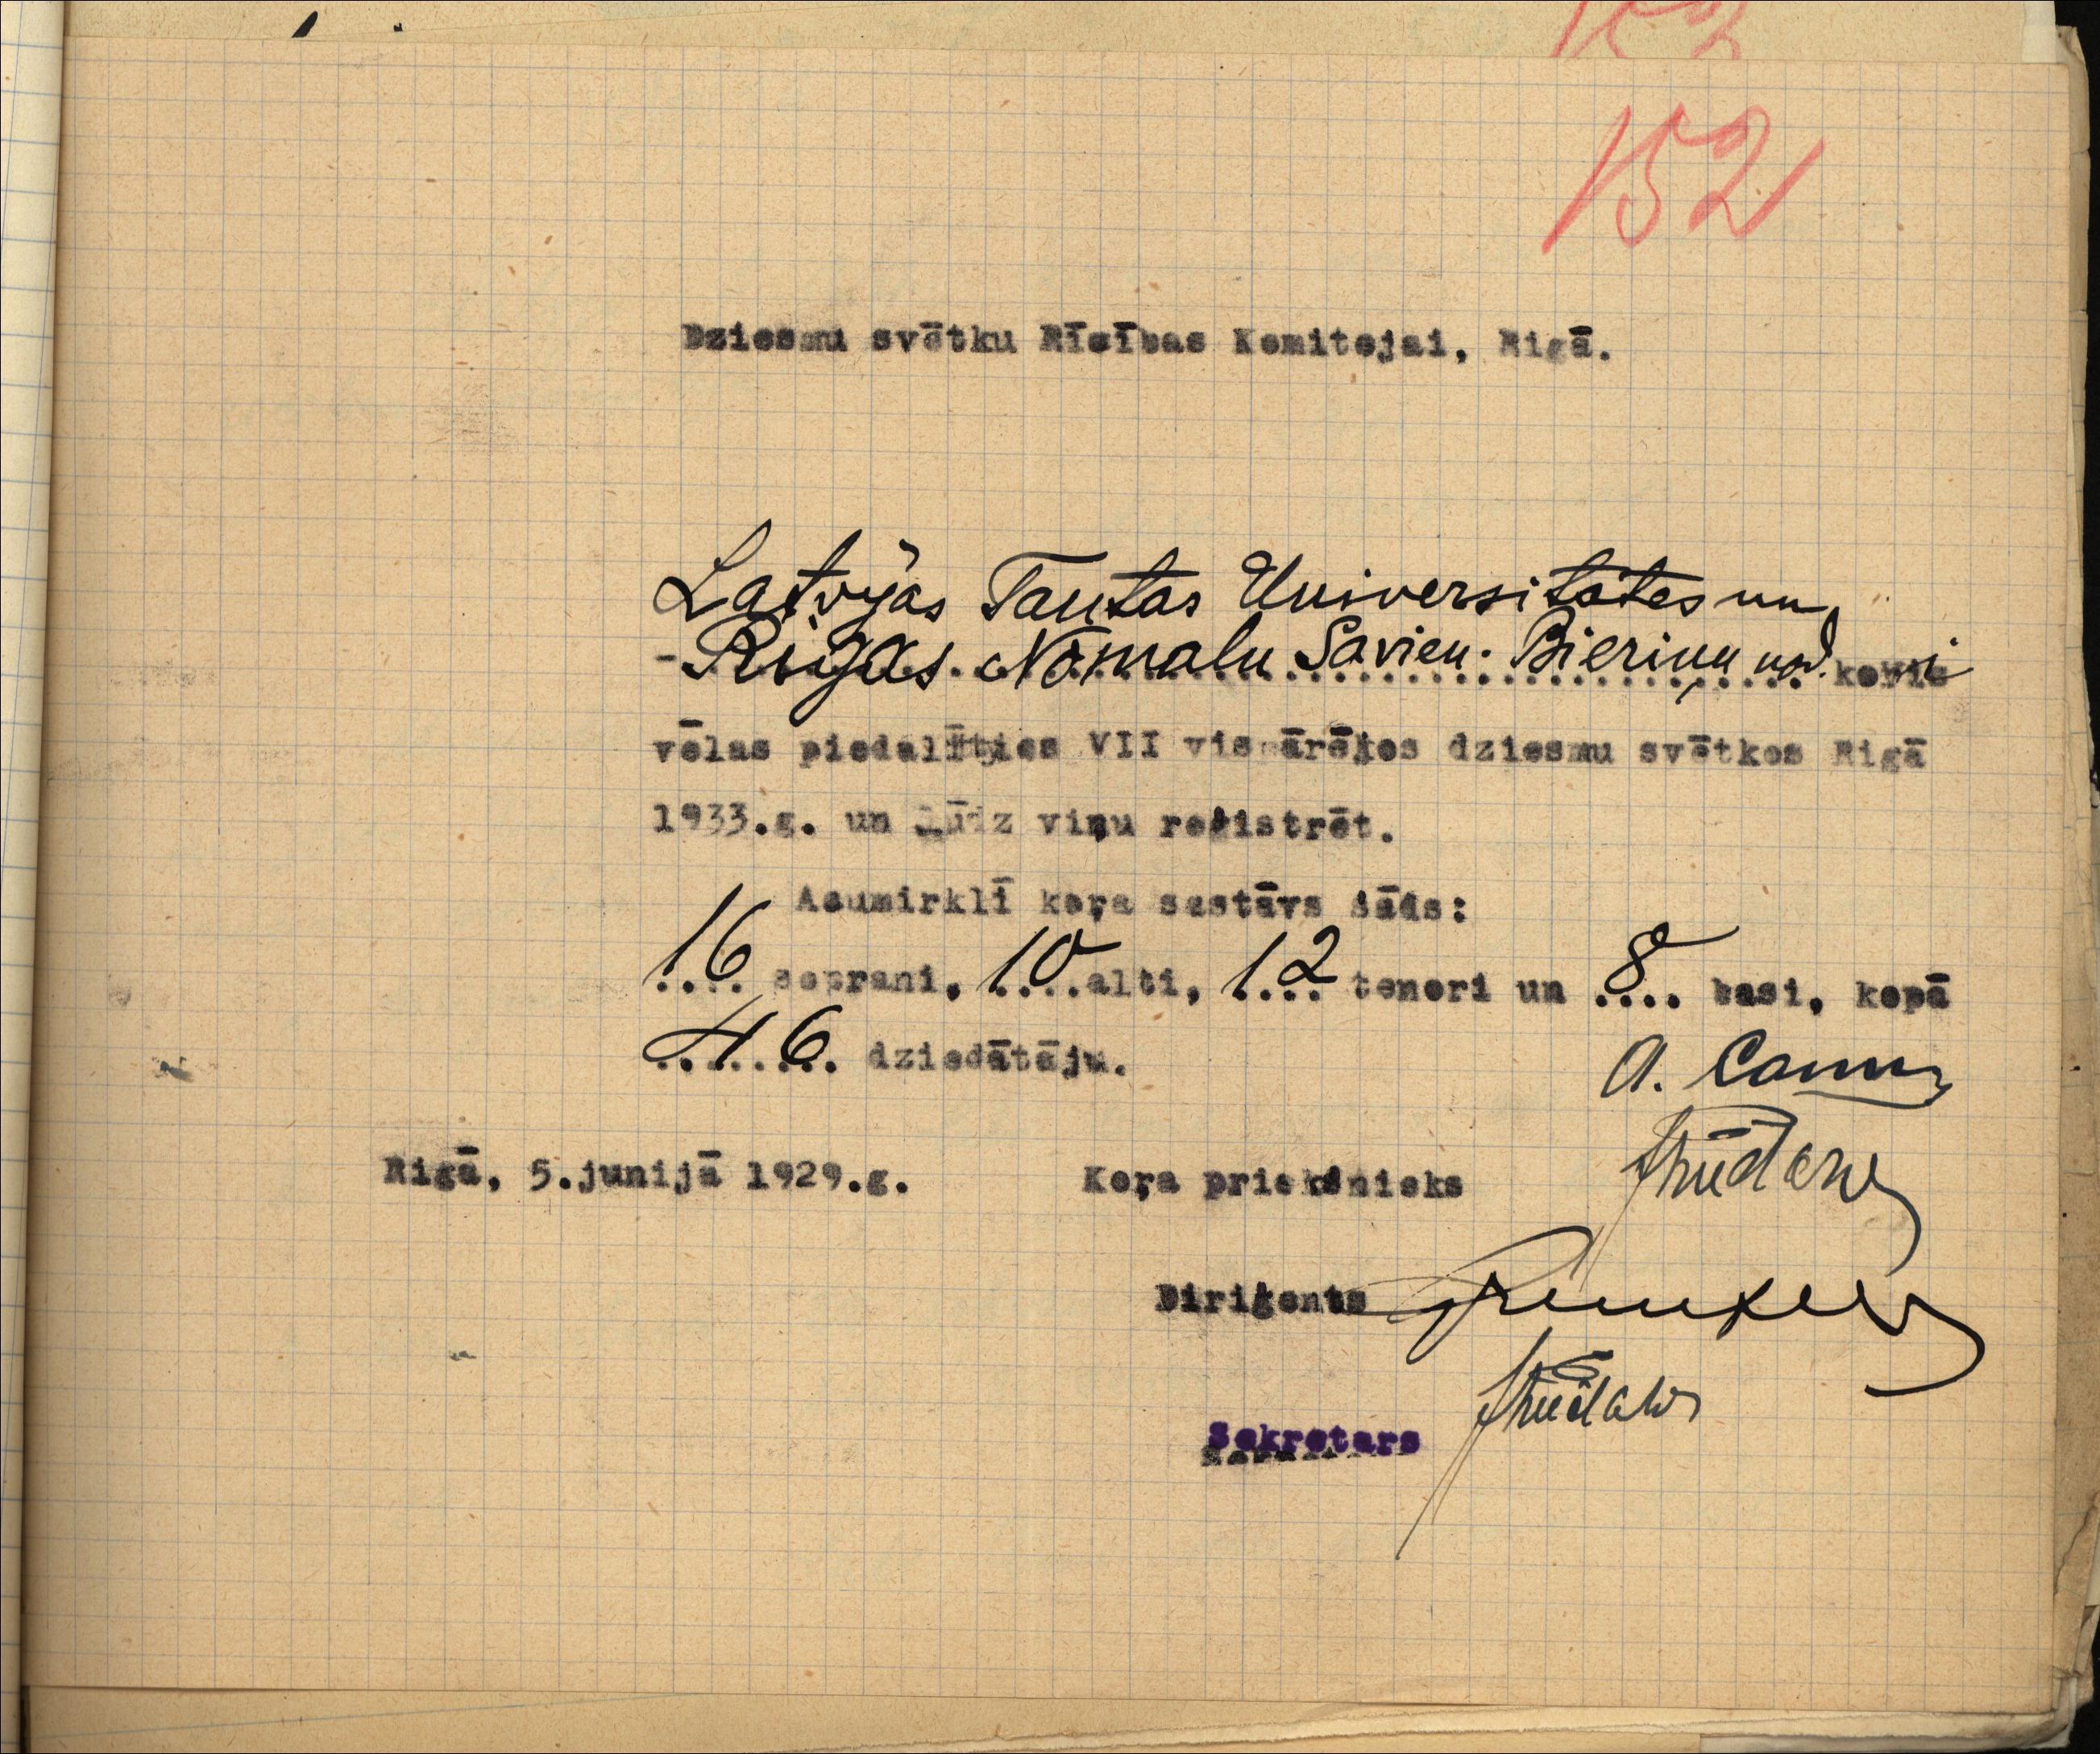 152
Dziesmu svētku Rīcības Komitejai, Rigā.
Latvijas Tautas Universitates un
Rigas Nomaļu Savien. Bieriņu nod. koŗi
vēlas piedalīties VII vispārējos dziesmu svētkos Rigā
1933.g. un lūdz viņu reģistrēt.
Acumirklī koŗa sastāvs šāds:
16 soprani, 10 alti, 12 tenori un 8 basi, kopā
46 dziedātāju.
A.
Rigā, 5.junijā 1929.g. Koŗa priekšnieks
Diriģents
Sekretars